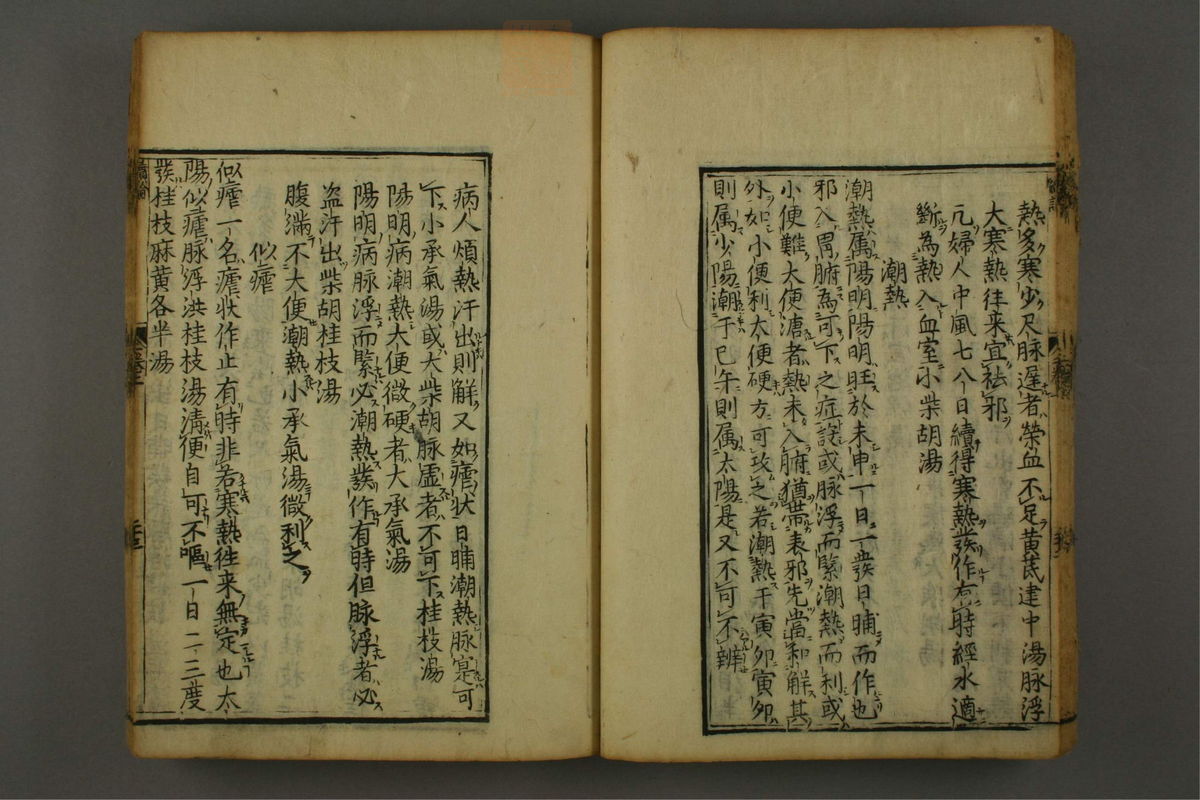 熱多寒少尺脉遲者榮血不足黄芪建中湯脉浮
大寒熱往来宜祛邪
一婦人中風七八日續得寒熱發作有時經水適
斷為熱入血室小柴胡湯
潮熱
潮熱属陽明陽明旺於未申一日一發日晡而作也
邪入胃腑為可下之症設或脉浮而緊潮熱而利或
小便難大便溏者熱未入腑猶帶表邪先當和解其
外如小便利大便硬方可攻之若潮熱于寅卯寅卯
則属少陽潮于巳午則属太陽是又不可不辨
病人煩熱汗出則觧又如瘧状日晡潮熱脉寔可
下小承氣湯或大柴胡脉虚者不可下桂枝湯
陽明病潮熱大便微硬者大承氣湯
陽明病脉浮而緊必潮熱發作有時但脉浮者必
盗汗出柴胡桂枝湯
腹滿不大便潮熱小承氣湯微利之
似瘧
似瘧一名瘧状作止有時非若寒熱徃来無定也太
陽似瘧脉浮洪桂枝湯清便自可不嘔一日二三度
發桂枝麻黄各半湯